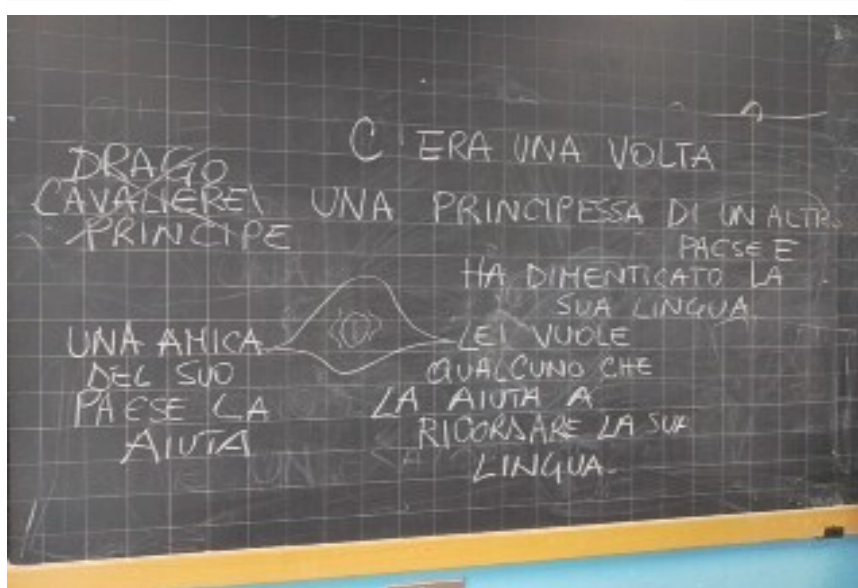 C'ERA UNA VOLTA
DRAGO
CAVALIERE
PRINCIPE
UNA PRINCIPESSA DI UN ALTRO
PAESE E
HA DIMENTICATO LA
SUA LINGUA.
LEI VUOLE
QUALCUNO CHE
LA AIUTA A
RICORDARE LA SUA
LINGUA.
UNA AMICA
DEL SUO
PAESE LA
AIUTA